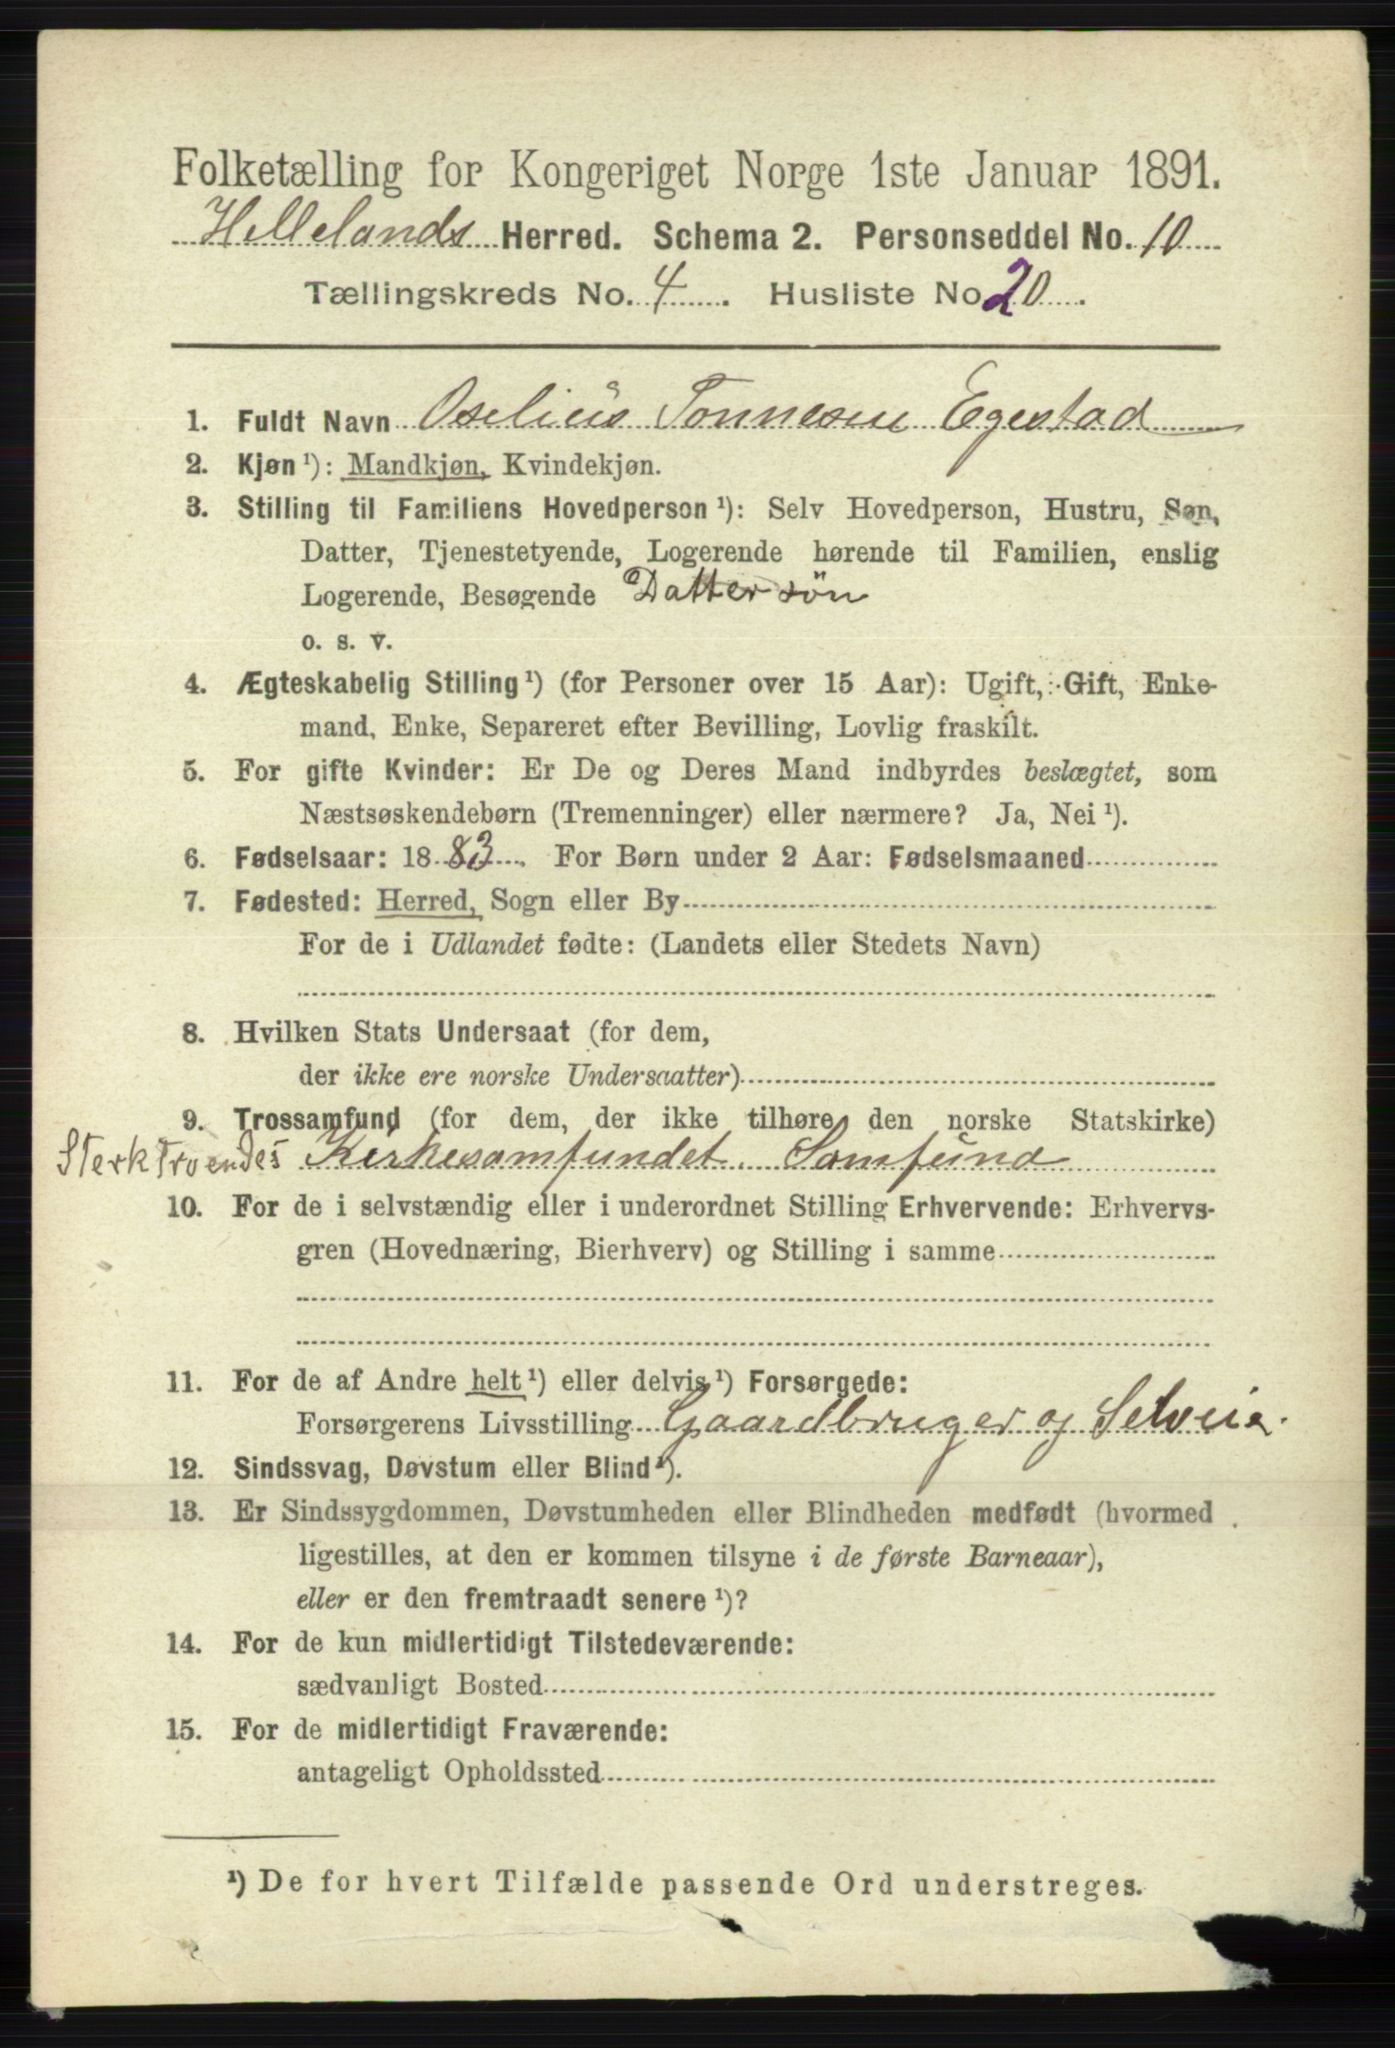 Folketælling for Kongeriget Norge 1ste Januar 1891.
Hellelands Herred. Schema 2. Personseddel No. 10
Tællingskreds No. 4. Husliste No 20.
1. Fuldt Navn Oselius Tonnesen Egestad
2. Kjøn ¹): Mandkjøn, Kvindekjøn.
3. Stilling til Familiens Hovedperson ¹): Selv Hovedperson, Hustru, Søn,
Datter, Tjenestetyende, Logerende hørende til Familien, enslig
Logerende, Besøgende Dattersön
o. s. v.
4. Ægteskabelig Stilling ¹) (for Personer over 15 Aar): Ugift, Gift, Enke-
mand, Enke, Separeret efter Bevilling, Lovlig fraskilt.
5. For gifte Kvinder: Er De og Deres Mand indbyrdes beslægtet, som
Næstsøskendebørn (Tremenninger) eller nærmere? Ja, Nei ¹).
6. Fødselsaar: 1883. For Børn under 2 Aar: Fødselsmaaned
7. Fødested: Herred, Sogn eller By
For de i Udlandet fødte: (Landets eller Stedets Navn)
8. Hvilken Stats Undersaat (for dem,
der ikke ere norske Undersaatter)
9. Trossamfund (for dem, der ikke tilhøre den norske Statskirke)
Sterktroendes Kirkesamfundet. Samfund
10. For de i selvstændig eller i underordnet Stilling Erhvervende: Erhvervs-
gren (Hovednæring, Bierhverv) og Stilling i samme
11. For de af Andre helt ¹) eller delvis ¹) Forsørgede:
Forsørgerens Livsstilling Gaardbruger og Selveie.
12. Sindssvag, Døvstum eller Blind ¹).
13. Er Sindssygdommen, Døvstumheden eller Blindheden medfødt (hvormed
ligestilles, at den er kommen tilsyne i de første Barneaar),
eller er den fremtraadt senere ¹)?
14. For de kun midlertidigt Tilstedeværende:
sædvanligt Bosted
15. For de midlertidigt Fraværende:
antageligt Opholdssted
¹) De for hvert Tilfælde passende Ord understreges.